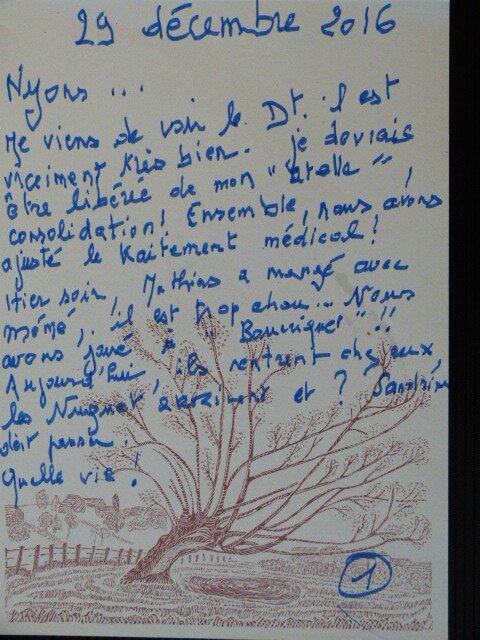 29 décembre 2016
Nyons ...
Je viens de voir le Dt. il est
vraiment très bien. je devrais
être libérée de mon "atelle",
consolidation! Ensemble, nous avons
ajusté le traitement médical!
Hier soir, Mathias a mangé avec
mémé, il est trop chou... Nous
avons joué à "Bourriquet"!!
Aujourd'hui, ils rentrent chez eux,
les arrivent et ? Sandrine
doit passer.
Quelle vie!
1